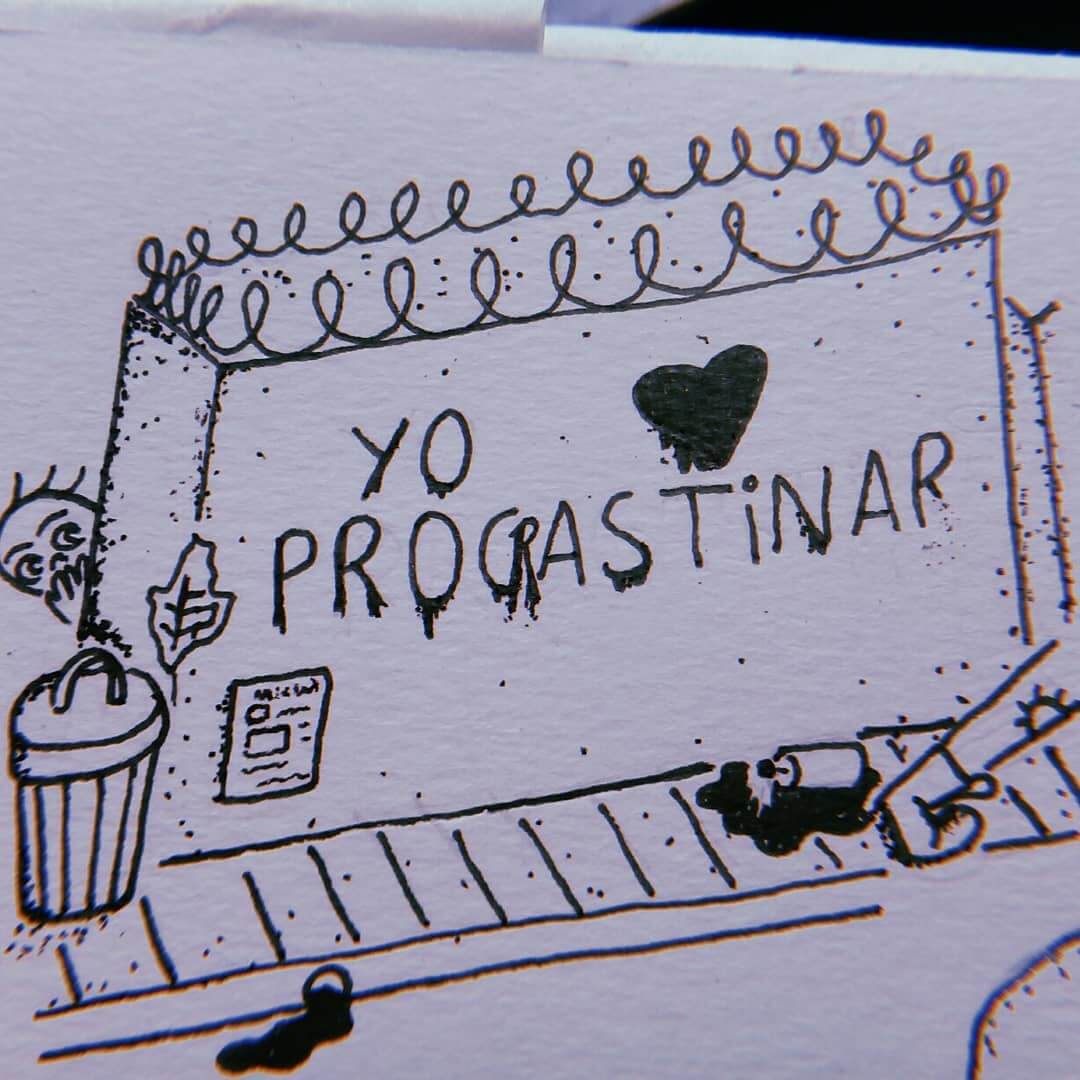 YO ♥
PROCRASTINAR